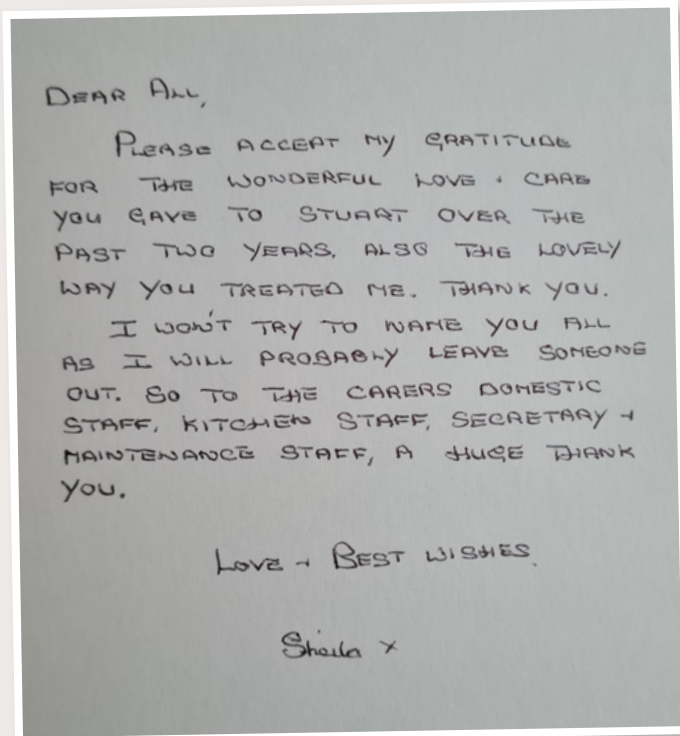 DEAR ALL,
PLEASE ACCEPT MY GRATITUDE
FOR THE WONDERFUL LOVE + CARE
YOU GAVE TO STUART OVER THE
PAST TWO YEARS. ALSO THE LOVELY
WAY YOU TREATED ME. THANK YOU.
I WON'T TRY TO NAME YOU ALL
AS I WILL PROBABLY LEAVE SOMEONE
OUT. SO TO THE CARERS DOMESTIC
STAFF, KITCHEN STAFF, SECRETARY +
MAINTENANCE STAFF, A HUGE THANK
YOU.
LOVE + BEST WISHES.
Sheila x